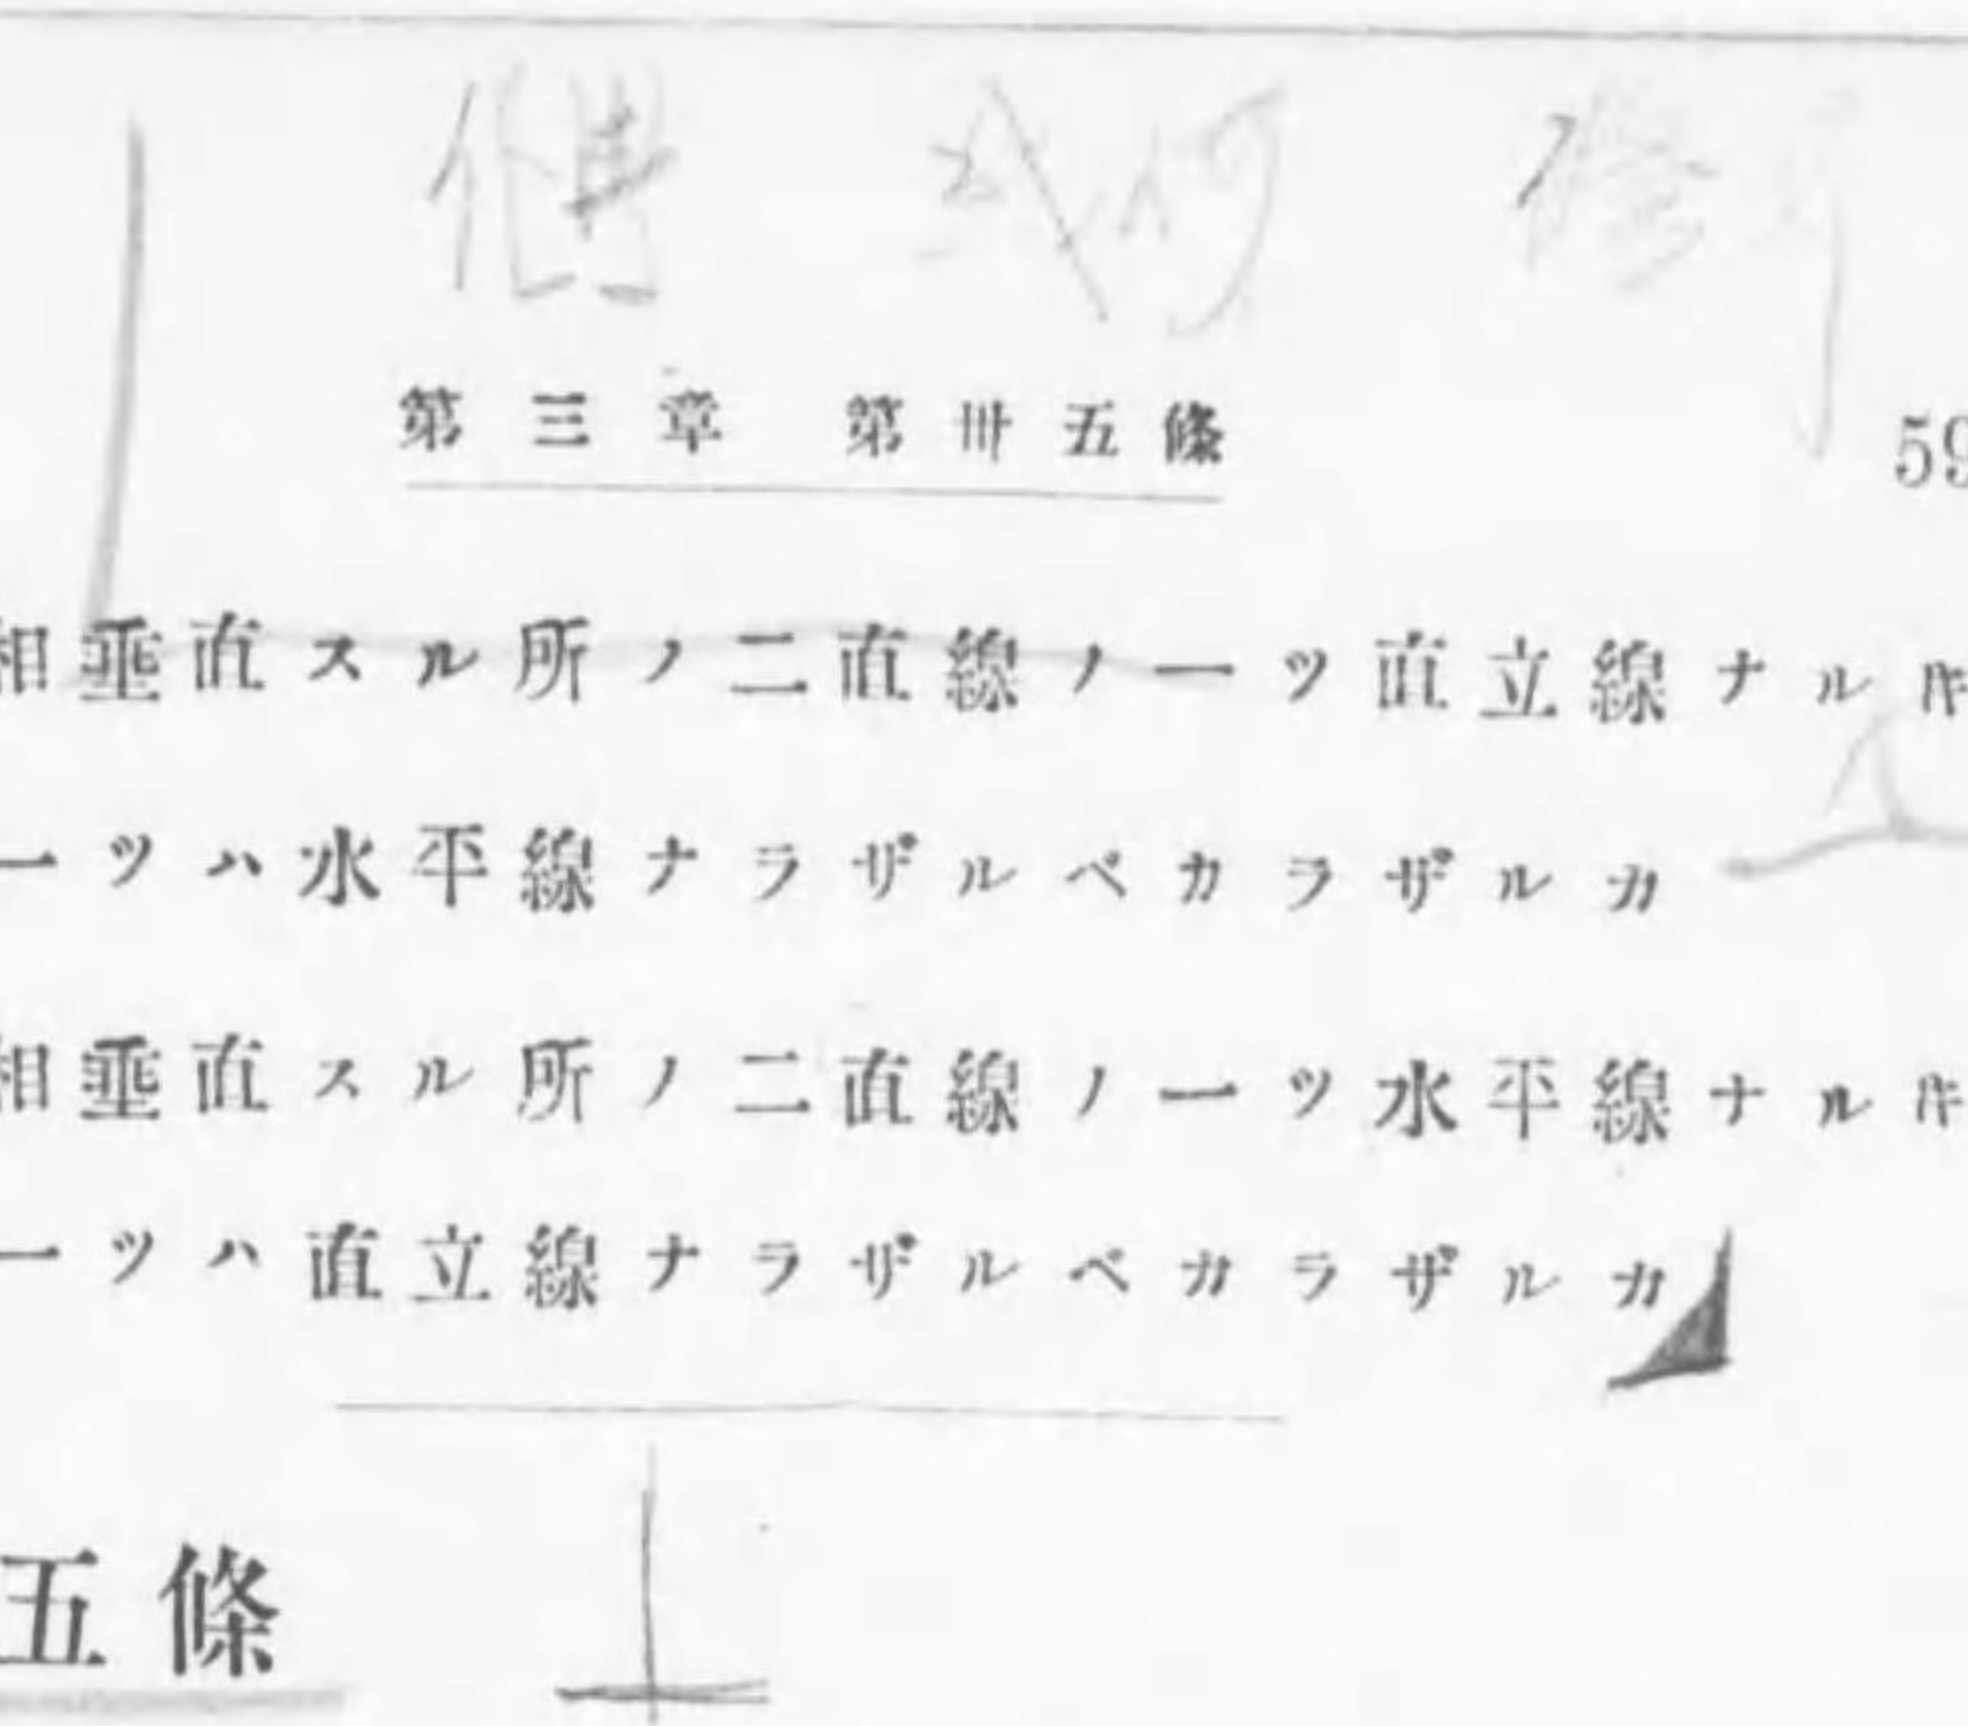 第三章 第卅五條 59
相垂直スル所ノ二直線ノ一ツ直立線ナル𪜈
一ツハ水平線ナラザルベカラザルカ
相垂直スル所ノ二直線ノ一ツ水平線ナル𪜈
一ツハ直立線ナラザルベカラザルカ
五條